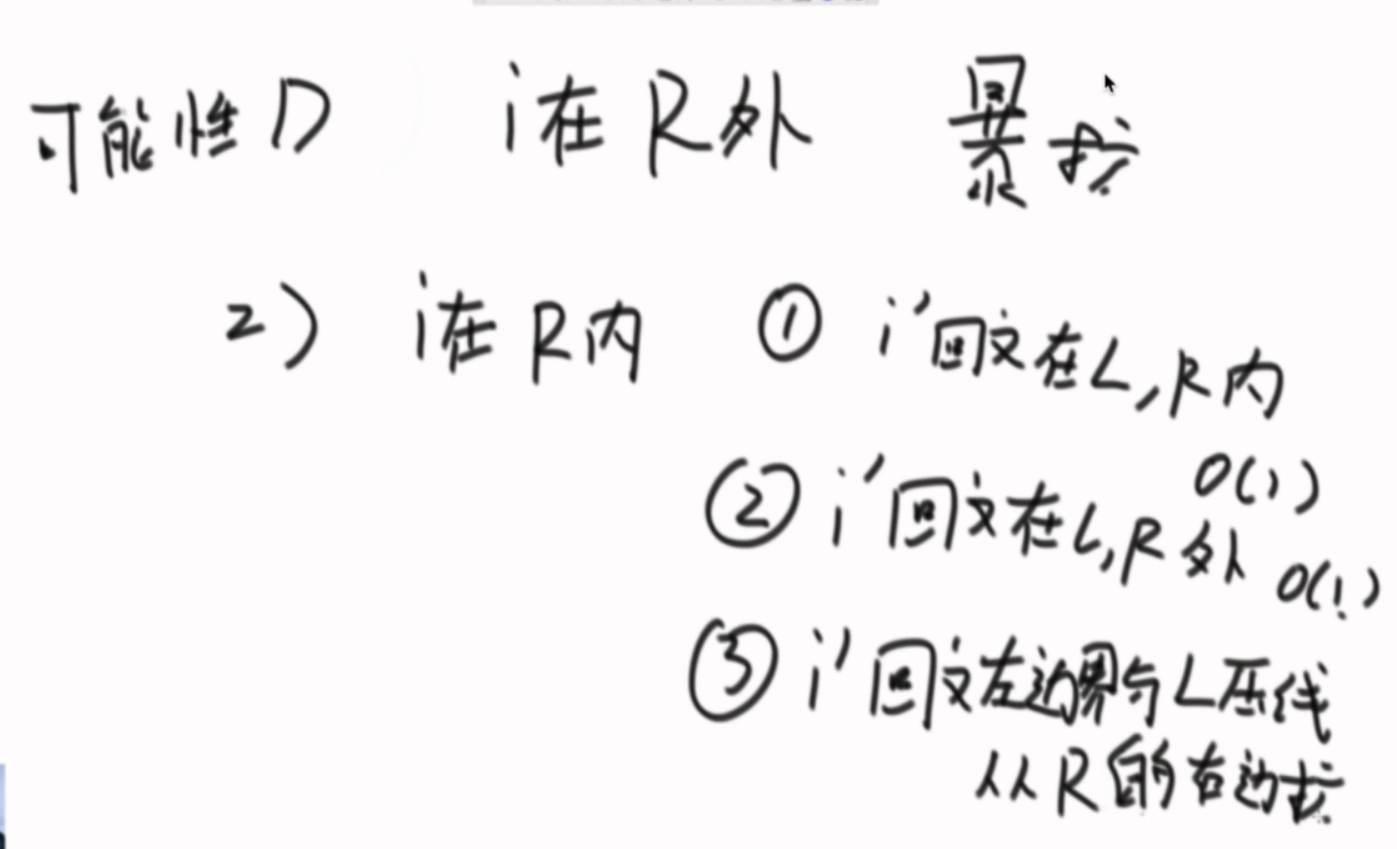 可能性1) i在R外 暴扩
2) i在R内 ① i'回文在L,R内
O(1)
② i'回文在L,R外 O(1)
③ i'回文左边界与L压线
从R的右边扩